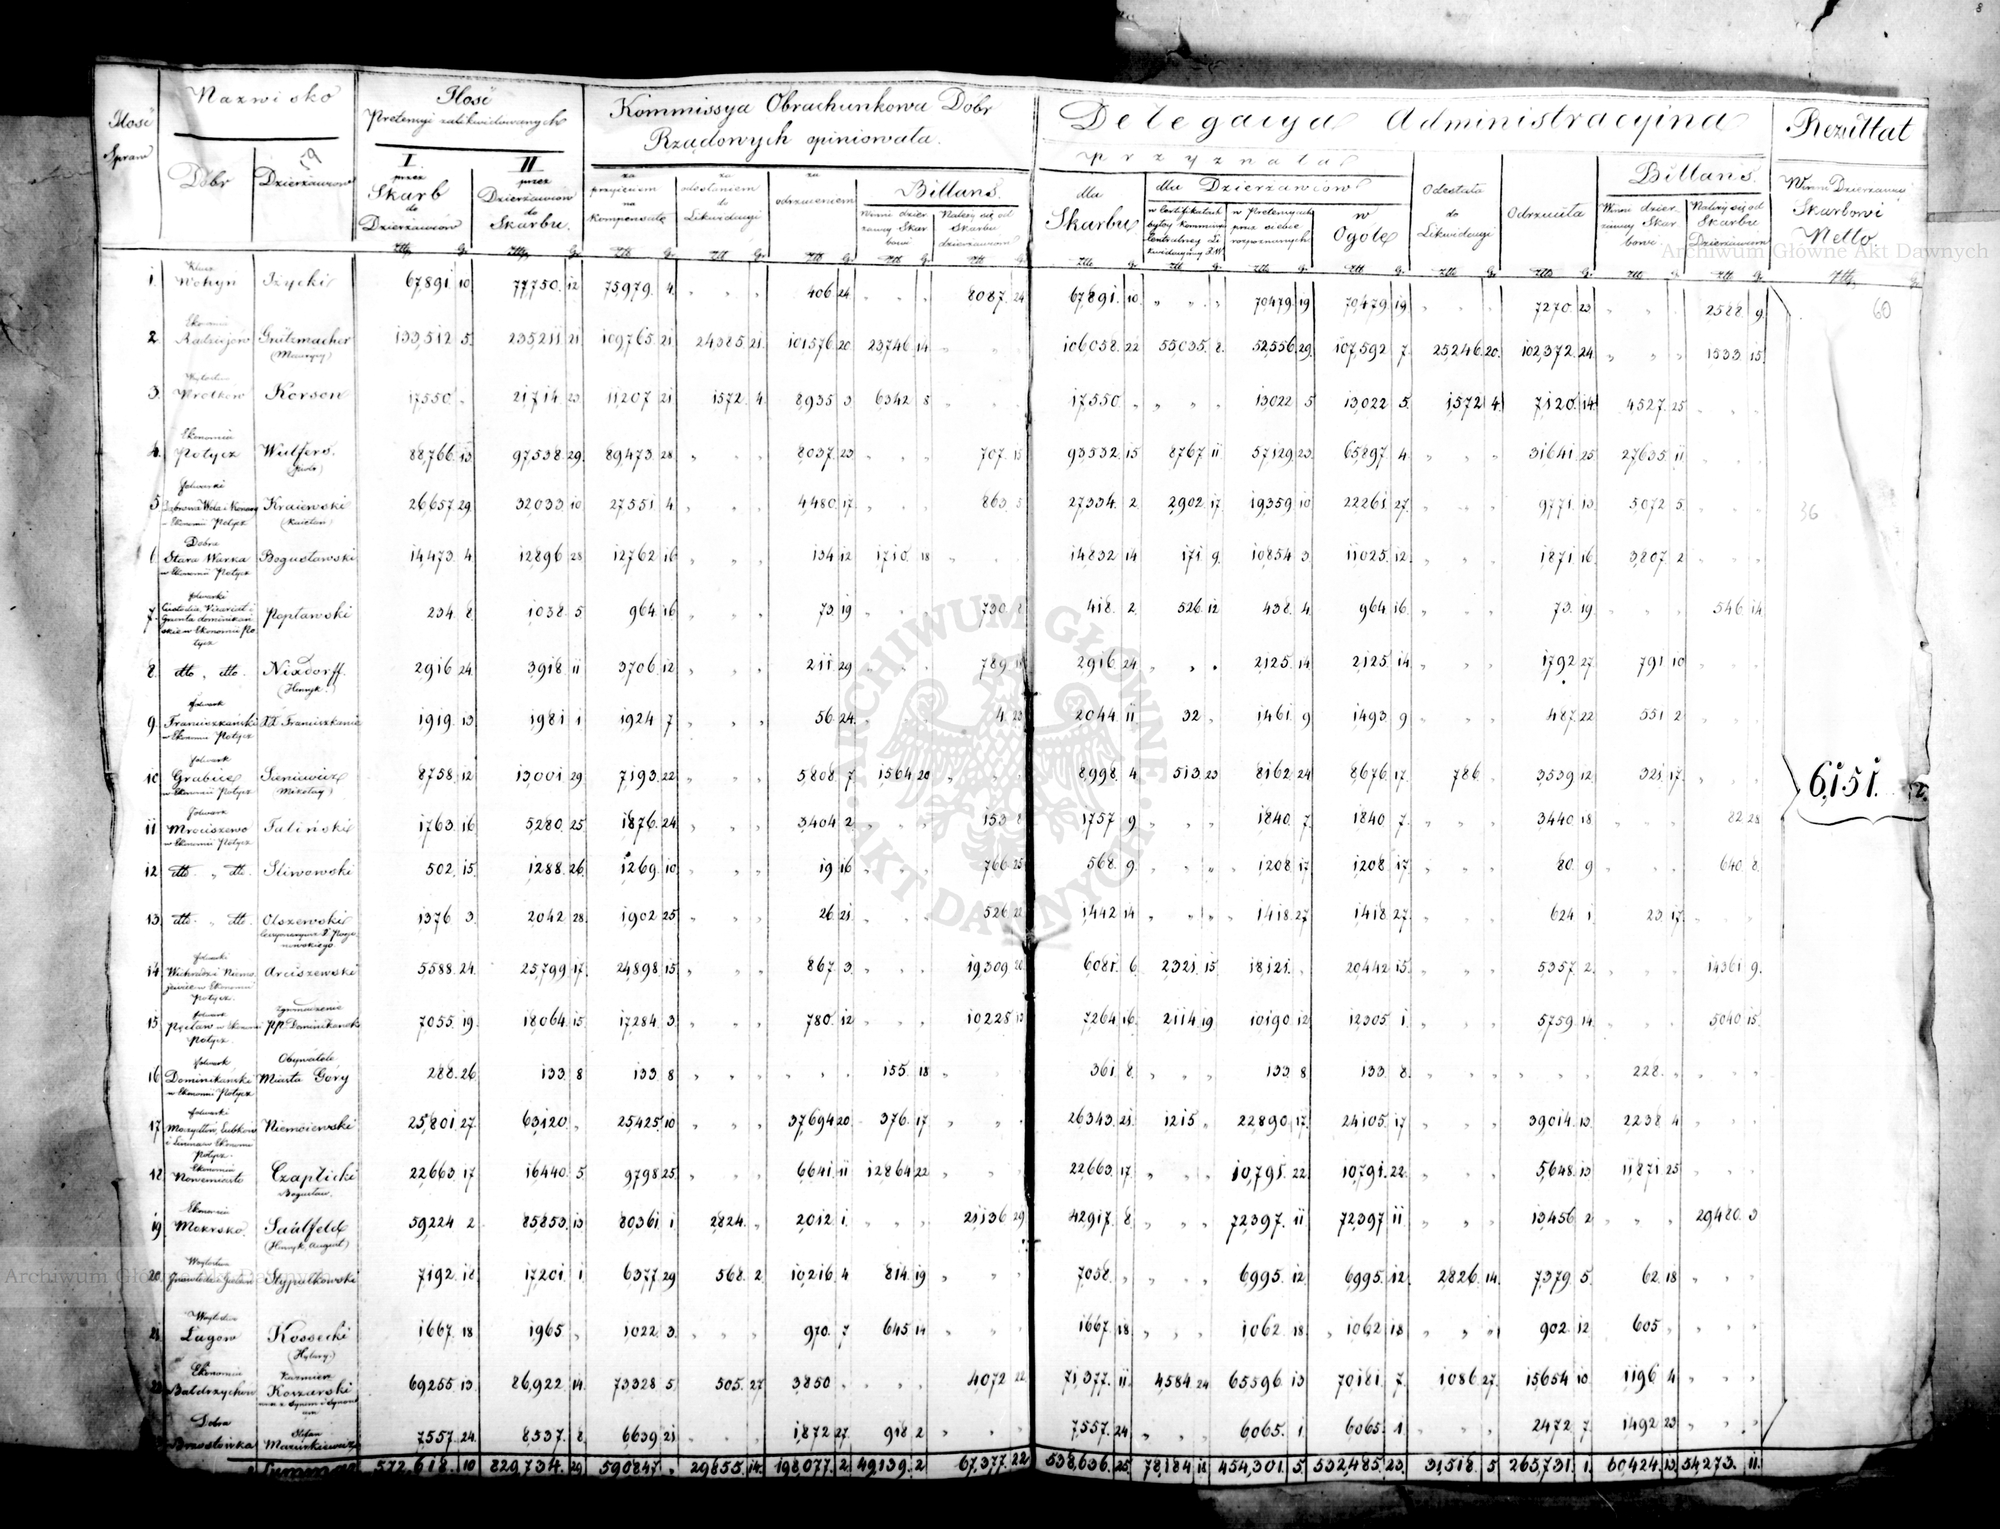 8
Ilość Spraw
Nazwisko
Dobr
Dzierżawców
19
Ilość Pretensyi zalikwidowanych
I. przez Skarb do Dzierżawców
II przez Dzierżawców do Skarbu.
Kommissya Obrachunkowa Dobr
Rządowych opiniowała.
za przyjęciem na kompensatę
za odesłaniem do Likwidacyi
za odrzuceniem
Billans.
Winni dzierżawcy Skarbowi
Należy się od Skarbu dzierżawcom
Delegacya Administracyina
przyznała
dla Skarbu
dla Dzierżawców
w Ogóle
Odesłała do Likwidacyi
Odrzuciła
Billans.
Winni dzierżawcy Skarbowi
Należy się od Skarbu Dzierżawcom
Rezultat
Winni Dzierżawcy Skarbowi Netto
1. Klucz Wohyń Izycki 67,891. 10 77,750. 12 75,979. 4 406 24 8087. 24 67,891. 10 70,479 19 70,479 19 7270. 23 2588. 9
60
2. Ekonomia Radziejów Grützmacher (Maurycy) 133,512 5. 235,211 21. 109,765. 21 24385. 21. 101,576. 20 23,746. 14 106058. 22 55035. 8. 52,556. 29. 107,592 7. 25,246. 20. 102,372. 24 1533. 15.
3. Korson 17,550. 21,714. 23 11,207 21 1572. 4. 8,935 3 6342 8 17,550 13,022 5 13,022 5. 1,572 4. 7,120. 14 4527. 25
4. Ekonomia Potycz Wulfers. 88,766. 13 97,538. 29. 89,473. 28 8,037. 23 707. 15 93532. 15 8767 11 57,129. 23. 65,897. 4. 31641. 25 27,635. 11
5. Folwarki w Ekonomii Potycz Kraiewski 26657. 29. 32033. 10 27,551. 4 4,480. 17. 863. 5 27,334. 2 2,902. 17 19,359. 10 22261. 27. 9,771. 13 5,072. 5
36
6. Dobra Stara Warka w Ekonomii Potycz Bogusławski 14,473. 4 12896. 28 12,762. 16 134. 12 1710. 18 14,832. 14 171. 9. 10,854. 3 11025. 12. 1871. 16 3,807. 2
7. Folwarki Popławski 234. 8 1038. 5 964. 16 73. 19 730. 8 418. 2 526. 12 438. 4 964. 16. 73. 19. 546. 14
8. dtto „ dtto. Nixdorff. (Henryk.) 2916 24. 3,918. 11 3706. 12 211. 29 789. 2,916. 24 2,125. 14 2,125. 14 1792. 27 791. 10
9. Folwark Franciszkański w Ekonomii Potycz XX Franciszkanie 1919. 13 1981. 1 1924. 7 56. 24. 4. 23 2044. 11 32 1461. 9 1493. 9 487. 22 551. 2
10 Folwark Grabice w Ekonomii Potycz Sieniewicz (Mikołay) 8758. 12 13,001. 29 7193. 22 5,808. 7 1564. 20 8,998. 4 513. 23 8162. 24 8676. 17. 786. 3539. 12 321. 17.
6151. 12.
11 Folwark Mroczewo w Ekonomii Potycz Tuliński 1763. 16 5,280. 25 1876. 24 3,404. 2 153. 8 1757. 9 1840. 7 1840 7. 3440. 18 82. 28
12. dtto „ dtto. Sliwowski 502. 15. 1288. 26 1269. 10 19. 16 766. 25 568. 9. 1208. 17. 1208. 17. 80. 9 640. 8.
13. dtto. „ dtto. Olszewski 1376. 3. 2042. 28 1902. 25 26. 21 526. 22 1442. 14 1,418. 27. 1418 27. 624. 1 23. 17.
14. Folwarki w Ekonomii Potycz. Arciszewski 5588. 24. 25,799. 17. 24898. 15 867. 3. 19309. 6081. 6. 2321. 15 18,121. 20,442. 15. 5,357. 2. 14361. 9.
15. Folwark w Ekonomii Potycz Zgromadzenie PP. Dominikanek 7055. 19. 18064. 15 17,284. 3 780. 12 10225. 12 7,264. 16 2114. 19 10190. 12 12305. 1. 5,759. 14 5040. 15
16. Folwark Dominikański w Ekonomii Potycz Obywatele Miasta Góry 288. 26 133. 8 133. 8 155. 18 361. 8. 133. 8 133. 8. 228.
17. Folwarki w Ekonomii Potycz. Niemoiewski 25,801. 27. 63,120. 25425. 10 37,694. 20 376. 17 26343. 21. 1215 22890. 17. 24105. 17 39014. 13. 2,238. 4
18. Ekonomia Nowemiasto Czaplicki Bogusław. 22,663. 17 16440. 5 9798. 25 6641. 11 12864. 22 22,663. 17 10,791. 22. 10,791. 22. 5,648. 13 11871. 25
19 Ekonomia Mokrsko. Saulfeld (Henryk August) 59,224 2 85,853. 13 80,361. 1 2824. 2,012. 1. 21136. 29 42917. 8. 72397. 11 72,397 11 13,456. 2 29480. 3
20. Stypułkowski 7192. 18 17,201. 1 6377. 29 568. 2 10,216. 4 814. 19 7,058. 6995. 12 6,995. 12 2,826. 14. 7,379. 5 62. 18
21. Łagow Kossecki (Hylary.) 1667. 18 1965 1022. 3. 970. 7 645. 14 1667. 18 1062. 18 1062. 18 902. 12 605.
22. Ekonomia Bałdrzychow Kazmierz Koszarski 69255. 13 86,922. 14. 73328. 5 505. 27 3,850. 4072. 22 71,377. 11. 4,584. 24 65596. 13 70,181. 7. 1086. 27. 15654. 10 1196. 4
Dobra Stefan Mazurkiewicz 7,557. 24. 8,537. 8 6639. 21 1,872. 27. 918. 2 7557. 24. 6065. 1. 6065. 1 2472. 7 1492. 23
Summa 572,618. 10 829,734. 29 590847. 29,855. 14 198,077. 2 49,139. 2 67,377. 22 538,636. 25 78,184. 18 454,301. 5. 532,485. 23. 31,518. 5 265,731. 1. 60,424. 13 54,273. 11.
ARCHIWUM GŁÓWNE AKT DAWNYCH
Archiwum Główne Akt Dawnych
Archiwum Główne Akt Dawnych